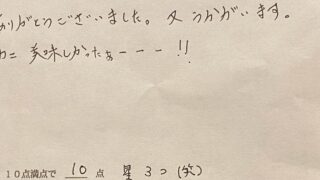 ありがとうございました。又うかがいます。
美味しかったぁーーー!!
10点満点で 10 点 星 3つ (笑)